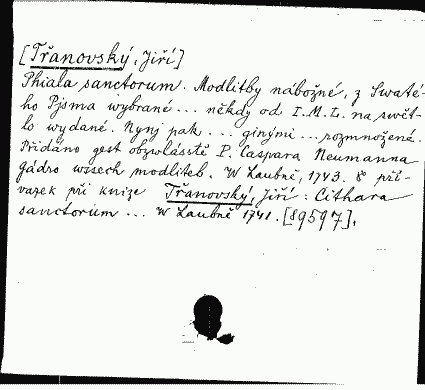 [Třanovský, Jiří]
Phiala sanctorum. Modlitby nábožné, z Swaté-
ho Pjsma wybrané ... někdy od I.M.L. na swět-
lo wydané. Nynj pak ... ginými ... rozmnožené.
Přidáno gest obzwlásstě P. Caspara Neumanna
gádro wssech modliteb. W Laubně, 1743. 8° pří-
vazek při knize Třanovský, Jiří: Cithara
sanctorum ... W Laubně 1741. [89597].